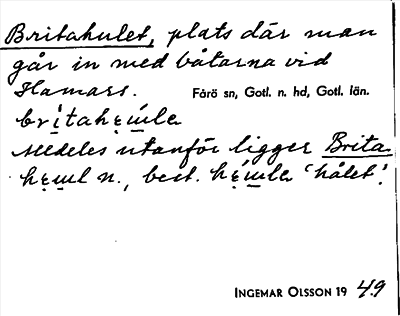 Britahulet, plats där man
går in med båtarna vid
Hamars. Fårö sn, Gotl. n. hd, Gotl. län.
britahęu̯le
alldeles utanför ligger Brita
hęu̯l n., best. hęu̯le 'hålet'.
INGEMAR OLSSON 19 49